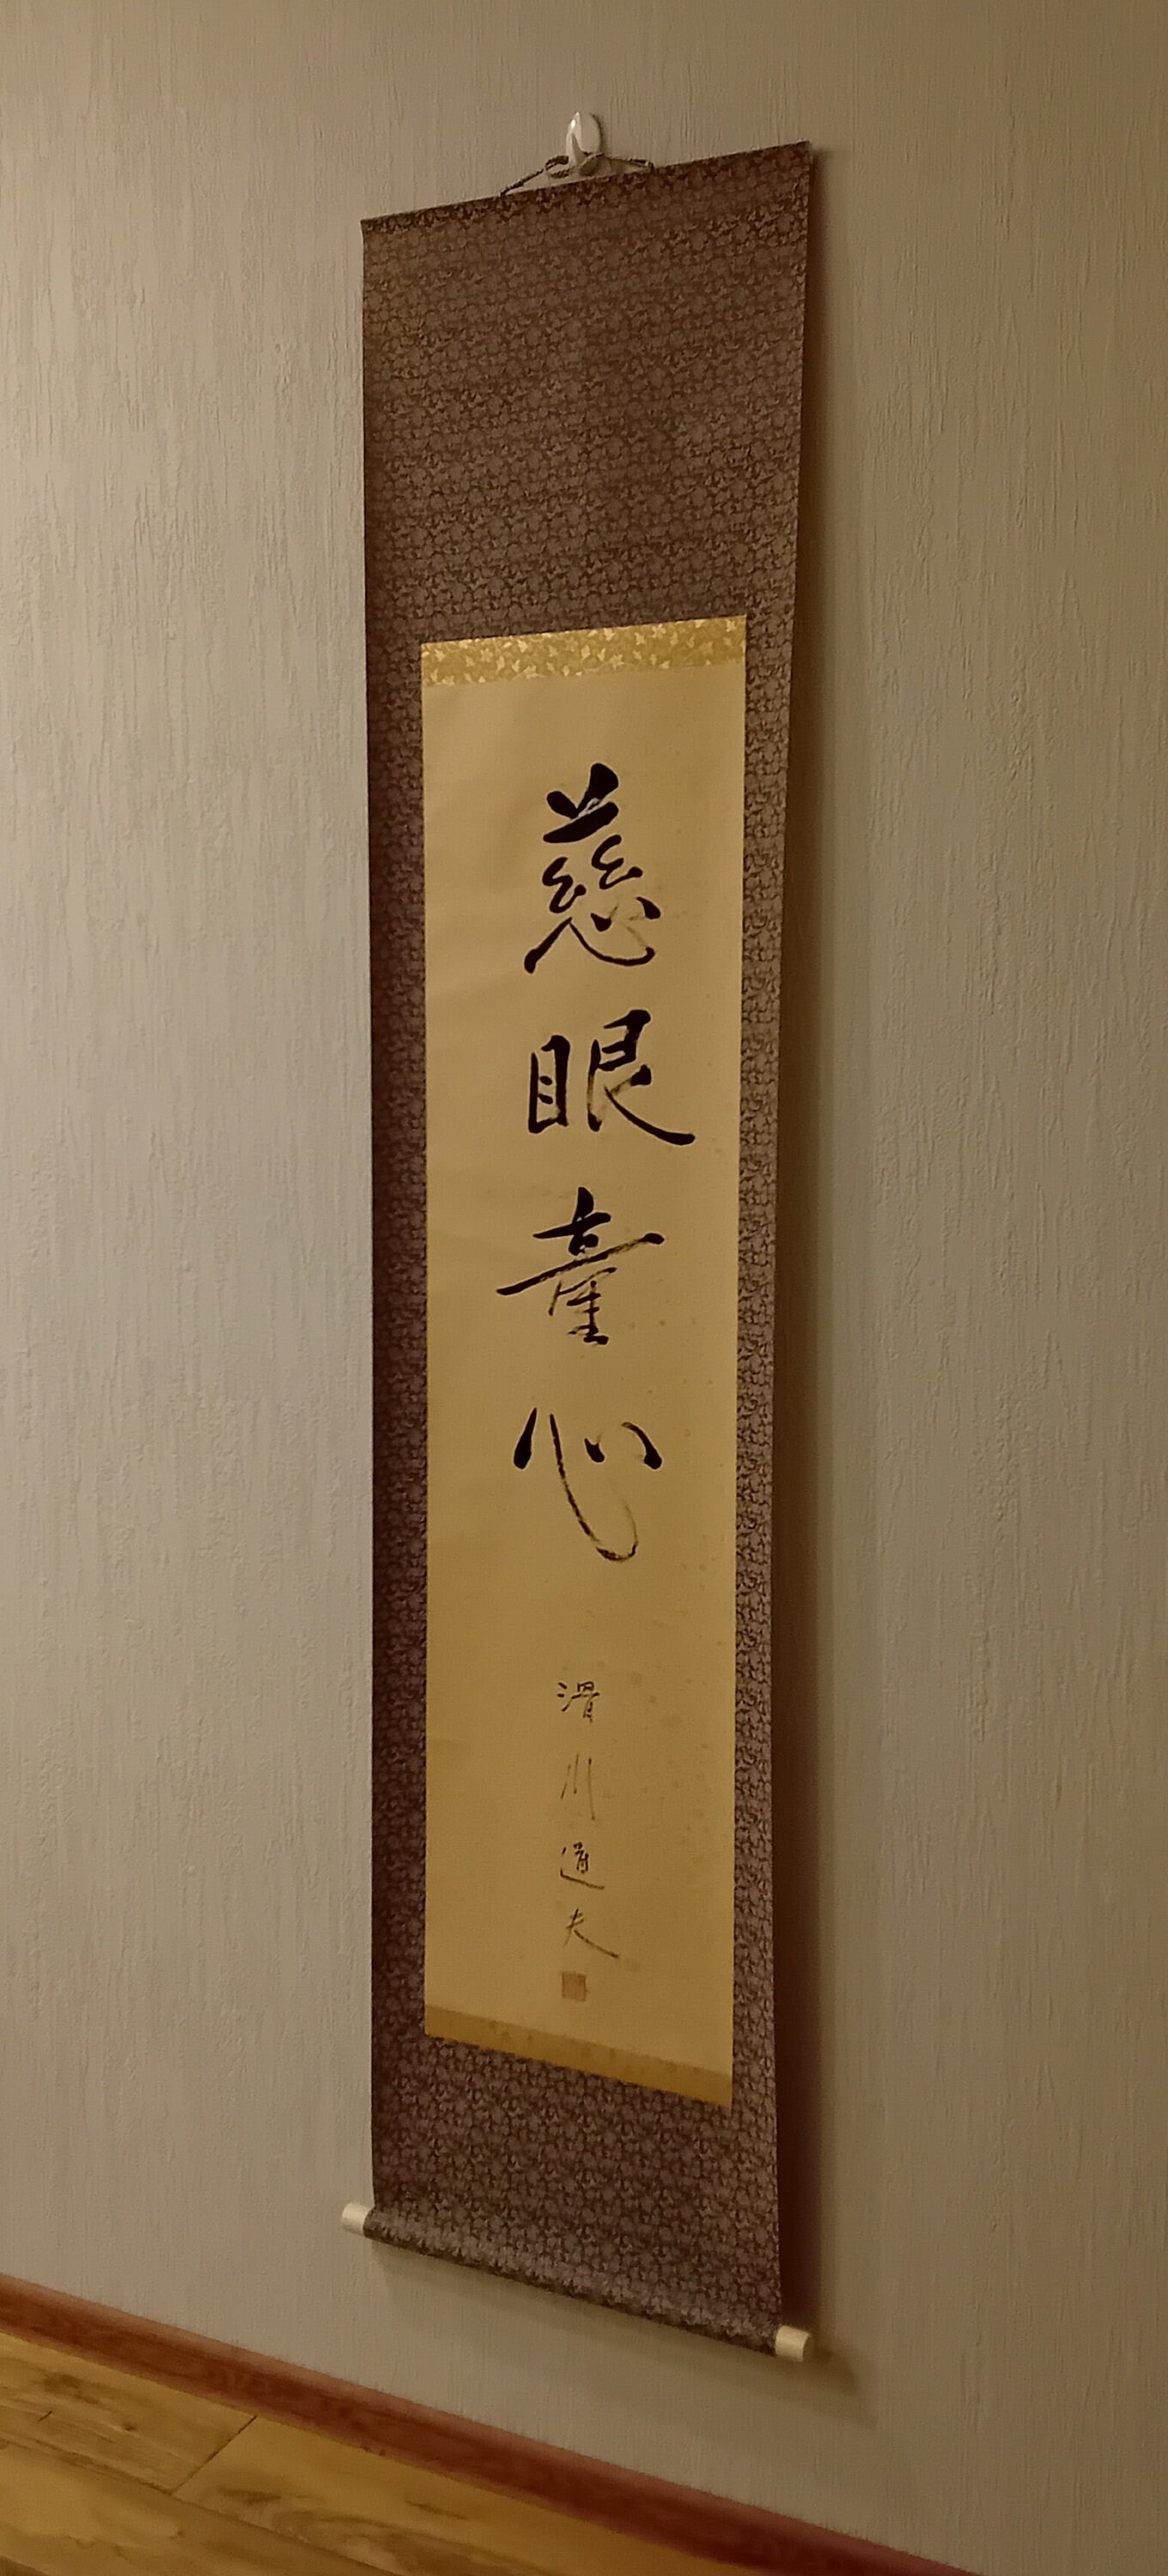 慈眼童心
滑川道夫